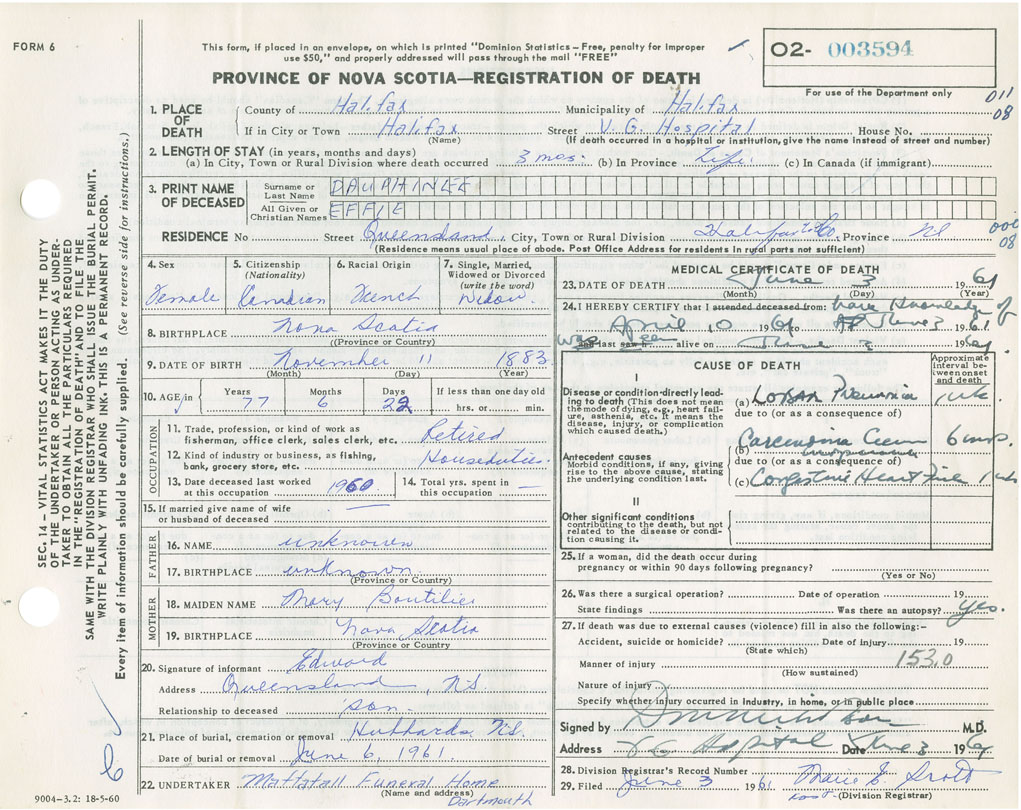 FORM 6
This form, if placed in an envelope, on which is printed "Dominion Statistics – Free, penalty for improper
use $50," and properly addressed will pass through the mail "FREE"
O2- 003594
PROVINCE OF NOVA SCOTIA—REGISTRATION OF DEATH
For use of the Department only
011
08
1. PLACE OF DEATH
County of Halifax Municipality of Halifax
If in City or Town Halifax Street V. G. Hospital House No.
(Name) (If death occurred in a hospital or institution, give the name instead of street and number)
2. LENGTH OF STAY (in years, months and days)
(a) In City, Town or Rural Division where death occurred 3 mos. (b) In Province Life (c) In Canada (if immigrant)
3. PRINT NAME OF DECEASED
Surname or Last Name DAUPHINEE
All Given or Christian Names EFFIE
RESIDENCE No Street Queensland, City, Town or Rural Division Halifax Co, Province NS
08
(Residence means usual place of abode. Post Office Address for residents in rural parts not sufficient)
4. Sex
Female
5. Citizenship
(Nationality)
Canadian
6. Racial Origin
French
7. Single, Married,
Widowed or Divorced
(write the word)
Widow
8. BIRTHPLACE Nova Scotia
(Province or Country)
9. DATE OF BIRTH November 11 1883
(Month) (Day) (Year)
10. AGE in
Years 77
Months 6
Days 22
If less than one day old
hrs. or min.
OCCUPATION
11. Trade, profession, or kind of work as
fisherman, office clerk, sales clerk, etc. Retired
12. Kind of industry or business, as fishing,
bank, grocery store, etc. Houseduties
13. Date deceased last worked
at this occupation 1960
14. Total yrs. spent in
this occupation —
15. If married give name of wife
or husband of deceased —
FATHER
16. NAME unknown
17. BIRTHPLACE unknown
(Province or Country)
MOTHER
18. MAIDEN NAME Mary Boutilier
19. BIRTHPLACE Nova Scotia
(Province or Country)
20. Signature of informant Edward
Address Queensland, NS
Relationship to deceased son
21. Place of burial, cremation or removal Hubbards, NS
Date of burial or removal June 6, 1961
22. UNDERTAKER Mattatall Funeral Home
(Name and address) Dartmouth
MEDICAL CERTIFICATE OF DEATH
23. DATE OF DEATH June 3 1961
(Month) (Day) (Year)
24. I HEREBY CERTIFY that I attended deceased from: have knowledge of
April 10 1961 to June 3 1961
and last saw h alive on June 3 1961
was seen
CAUSE OF DEATH
Approximate
interval between onset
and death
I
Disease or condition directly leading to death (This does not mean
the mode of dying, e.g., heart failure, asthenia, etc. It means the
disease, injury, or complication
which caused death.)
(a) Lobar Pneumonia 1 wk
due to (or as a consequence of)
Antecedent causes
Morbid conditions, if any, giving
rise to the above cause, stating
the underlying condition last.
(b) Carcinoma Cecum 6 mos.
due to (or as a consequence of)
(c) Congestive Heart
II
Other significant conditions
contributing to the death, but not
related to the disease or condition causing it.
25. If a woman, did the death occur during
pregnancy or within 90 days following pregnancy?
(Yes or No)
26. Was there a surgical operation? Date of operation 19
State findings Was there an autopsy? Yes.
27. If death was due to external causes (violence) fill in also the following:–
Accident, suicide or homicide? Date of injury 19
(State which)
Manner of injury 153.0
(How sustained)
Nature of injury
Specify whether injury occurred in industry, in home, or in public place
Signed by M.D.
Address VG Hospital Date June 3 1961
28. Division Registrar's Record Number
29. Filed June 3 1961
(Division Registrar)
SEC. 14 – VITAL STATISTICS ACT MAKES IT THE DUTY
OF THE UNDERTAKER OR PERSON ACTING AS UNDERTAKER TO OBTAIN ALL THE PARTICULARS REQUIRED
IN THE "REGISTRATION OF DEATH" AND TO FILE THE
SAME WITH THE DIVISION REGISTRAR WHO SHALL ISSUE THE BURIAL PERMIT.
WRITE PLAINLY WITH UNFADING INK. THIS IS A PERMANENT RECORD.
Every item of information should be carefully supplied. (See reverse side for instructions.)
9004-3.2: 18-5-60